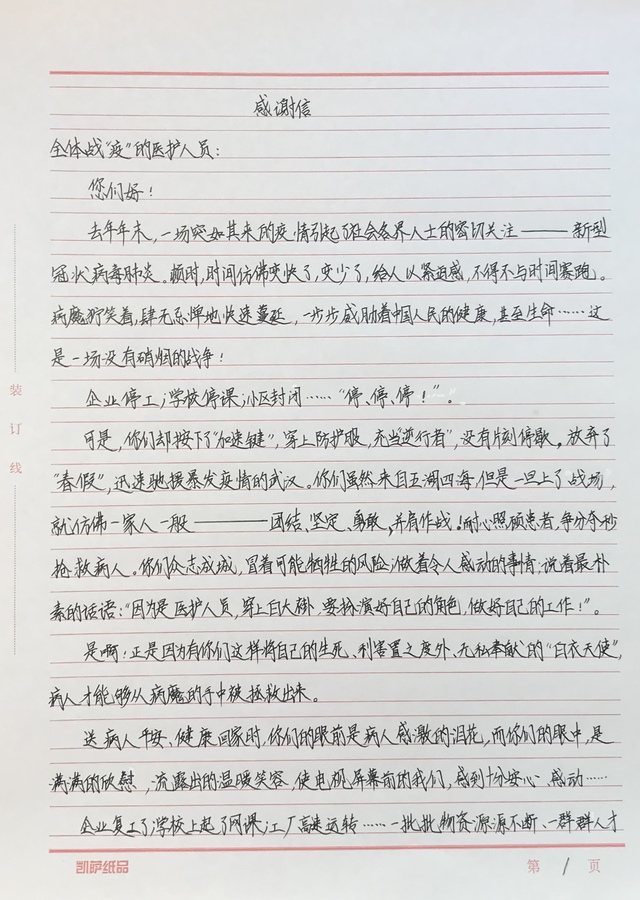 感谢信
全体战“疫”的医护人员：
您们好！
去年年末，一场突如其来的疫情引起了社会各界人士的密切关注——新型
冠状病毒肺炎。顿时，时间仿佛变快了，变少了，给人以紧迫感，不得不与时间赛跑。
病魔狞笑着，肆无忌惮地快速蔓延，一步步威胁着中国人民的健康，甚至生命……这
是一场没有硝烟的战争！
企业停工；学校停课；小区封闭……“停、停、停！”。
可是，你们却按下了“加速键”，穿上防护服，充当“逆行者”，没有片刻停歇。放弃了
“春假”，迅速驰援暴发疫情的武汉。你们虽然来自五湖四海，但是一旦上了战场，
就仿佛一家人一般——团结、坚定、勇敢，并肩作战！耐心照顾患者，争分夺秒
抢救病人。你们众志成城，冒着可能牺牲的风险；做着令人感动的事情；说着最朴
素的话语：“因为是医护人员，穿上白大褂，要扮演好自己的角色，做好自己的工作！”。
是啊！正是因为有你们这样将自己的生死、利害置之度外、无私奉献的“白衣天使”，
病人才能够从病魔的手中被拯救出来。
送病人平安、健康回家时，你们的眼前是病人感激的泪花，而你们的眼中，是
满满的欣慰，流露出的温暖笑容，使电视屏幕前的我们，感到十分安心、感动……
企业复工了；学校上起了网课；工厂高速运转……一批批物资源源不断、一群群人才
装
订
线
凯萨纸品
第 1 页